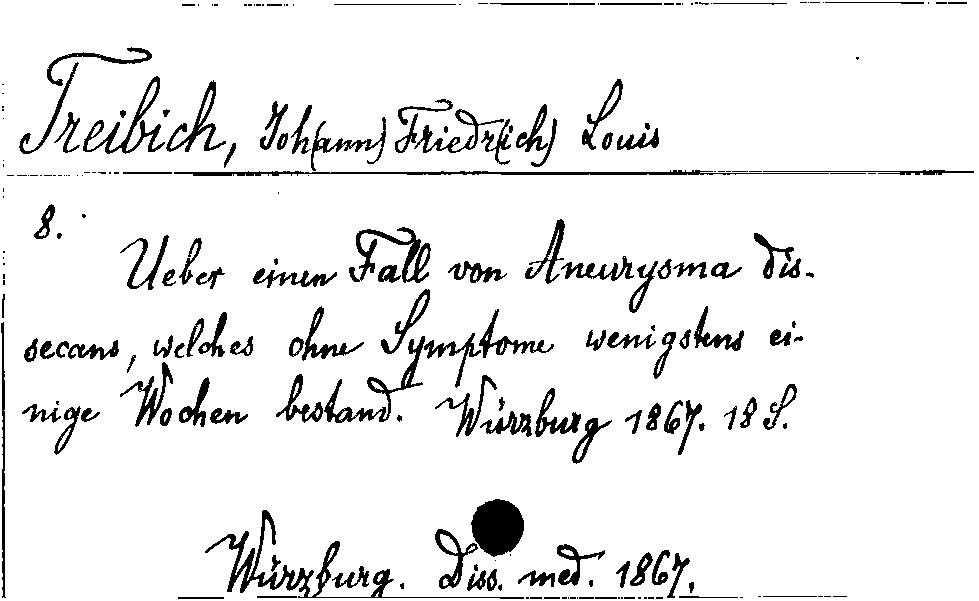 Treibich, Joh(ann) Friedr(ich) Louis
8.
Ueber einen Fall von Aneurysma dis-
secans, welches ohne Symptome wenigstens ei-
nige Wochen bestand. Würzburg 1867. 18 S.
Würzburg. Diss. med. 1867.